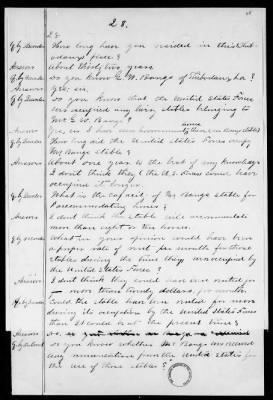 28.
28
Q by Claimant How long have you resided in this Thibodaux place?
Answer About thirty two years
Q by Claimant Do you know G. W. Bange of Thibodaux, La?
Answer Yes, sir.
Q by Claimant Do you know that the United States Forces
occupied any livery stables belonging to
Mr. G. W. Bange?
Answer Yes, sir I have
Q by Claimant How long did the United States Forces occupy
Mr. Bange Stable?
Answer About one year to the best of my knowledge
I don't think they the U.S. Forces could have
occupied it longer.
Q by Claimant What is the capacity of Mr. Bange stable for
accommodating horses?
Answer I don't think the stable will accommodate
more than eight or ten horses.
Q by Claimant What in your opinion would have been
a proper rate of rent per month for those
stables during the time they were occupied by
the United States Forces?
Answer I don't think they could have rented for
more than twenty dollars per month.
Q by Claimant Could the stable have been rented for more
during its occupation by the United States Forces
than it could be at the present time?
Answer No,
Q by Claimant Do you know whether Mr. Bange received
any remuneration from the United States for
the use of those stables?